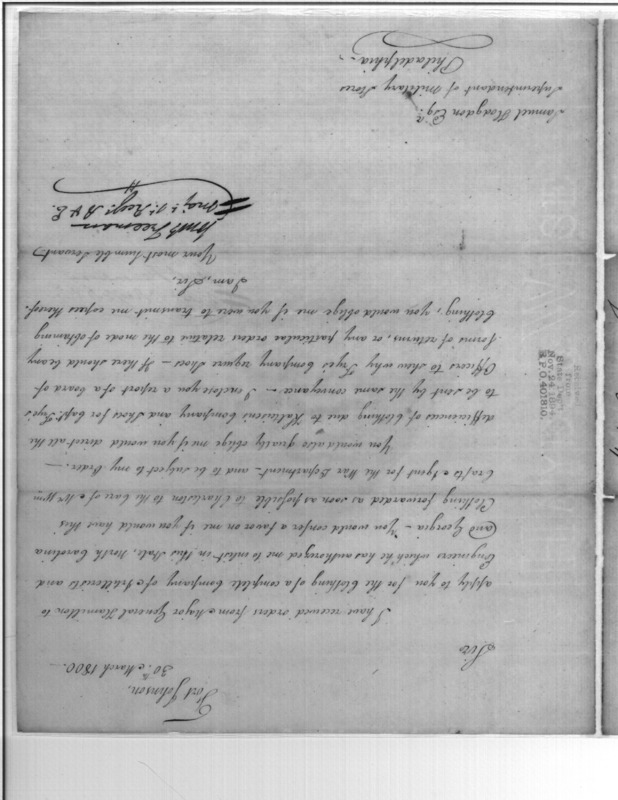 Fort Johnson,
30th March 1800.
Sir
I have received orders from Major General Hamilton to
apply to you for the Clothing of a complete Company of Artillerists and
Engineers which he has authorized me to enlist in this State, North Carolina
and Georgia - You would confer a favor on me if you would have this
Clothing forwarded as soon as possible to Charleston to the care of Mr Wm
Crafts Agent for the War Department - and to be subject to my Order. -
You would also greatly oblige me if you would direct all the
deficiencies of Clothing due to Kalteisen's Company and Shoes for Capt. Frye's
to be sent by the same conveyance - I enclose you a report of a board of
Officers to shew why Frye's Company require Shoes - If there should be any
forms of returns, or, any particular orders relative to the mode of obtaining
Clothing, you would oblige me if you were to transmit me copies thereof.
I am, Sir,
Your most humble Servant
Freeman
Maj. 1. Regt. A & E.
Samuel Hodgdon Esqr.
Superintendant of Military Stores
Philadelphia -
Nov. 24 1894
R.P.O. 401810.